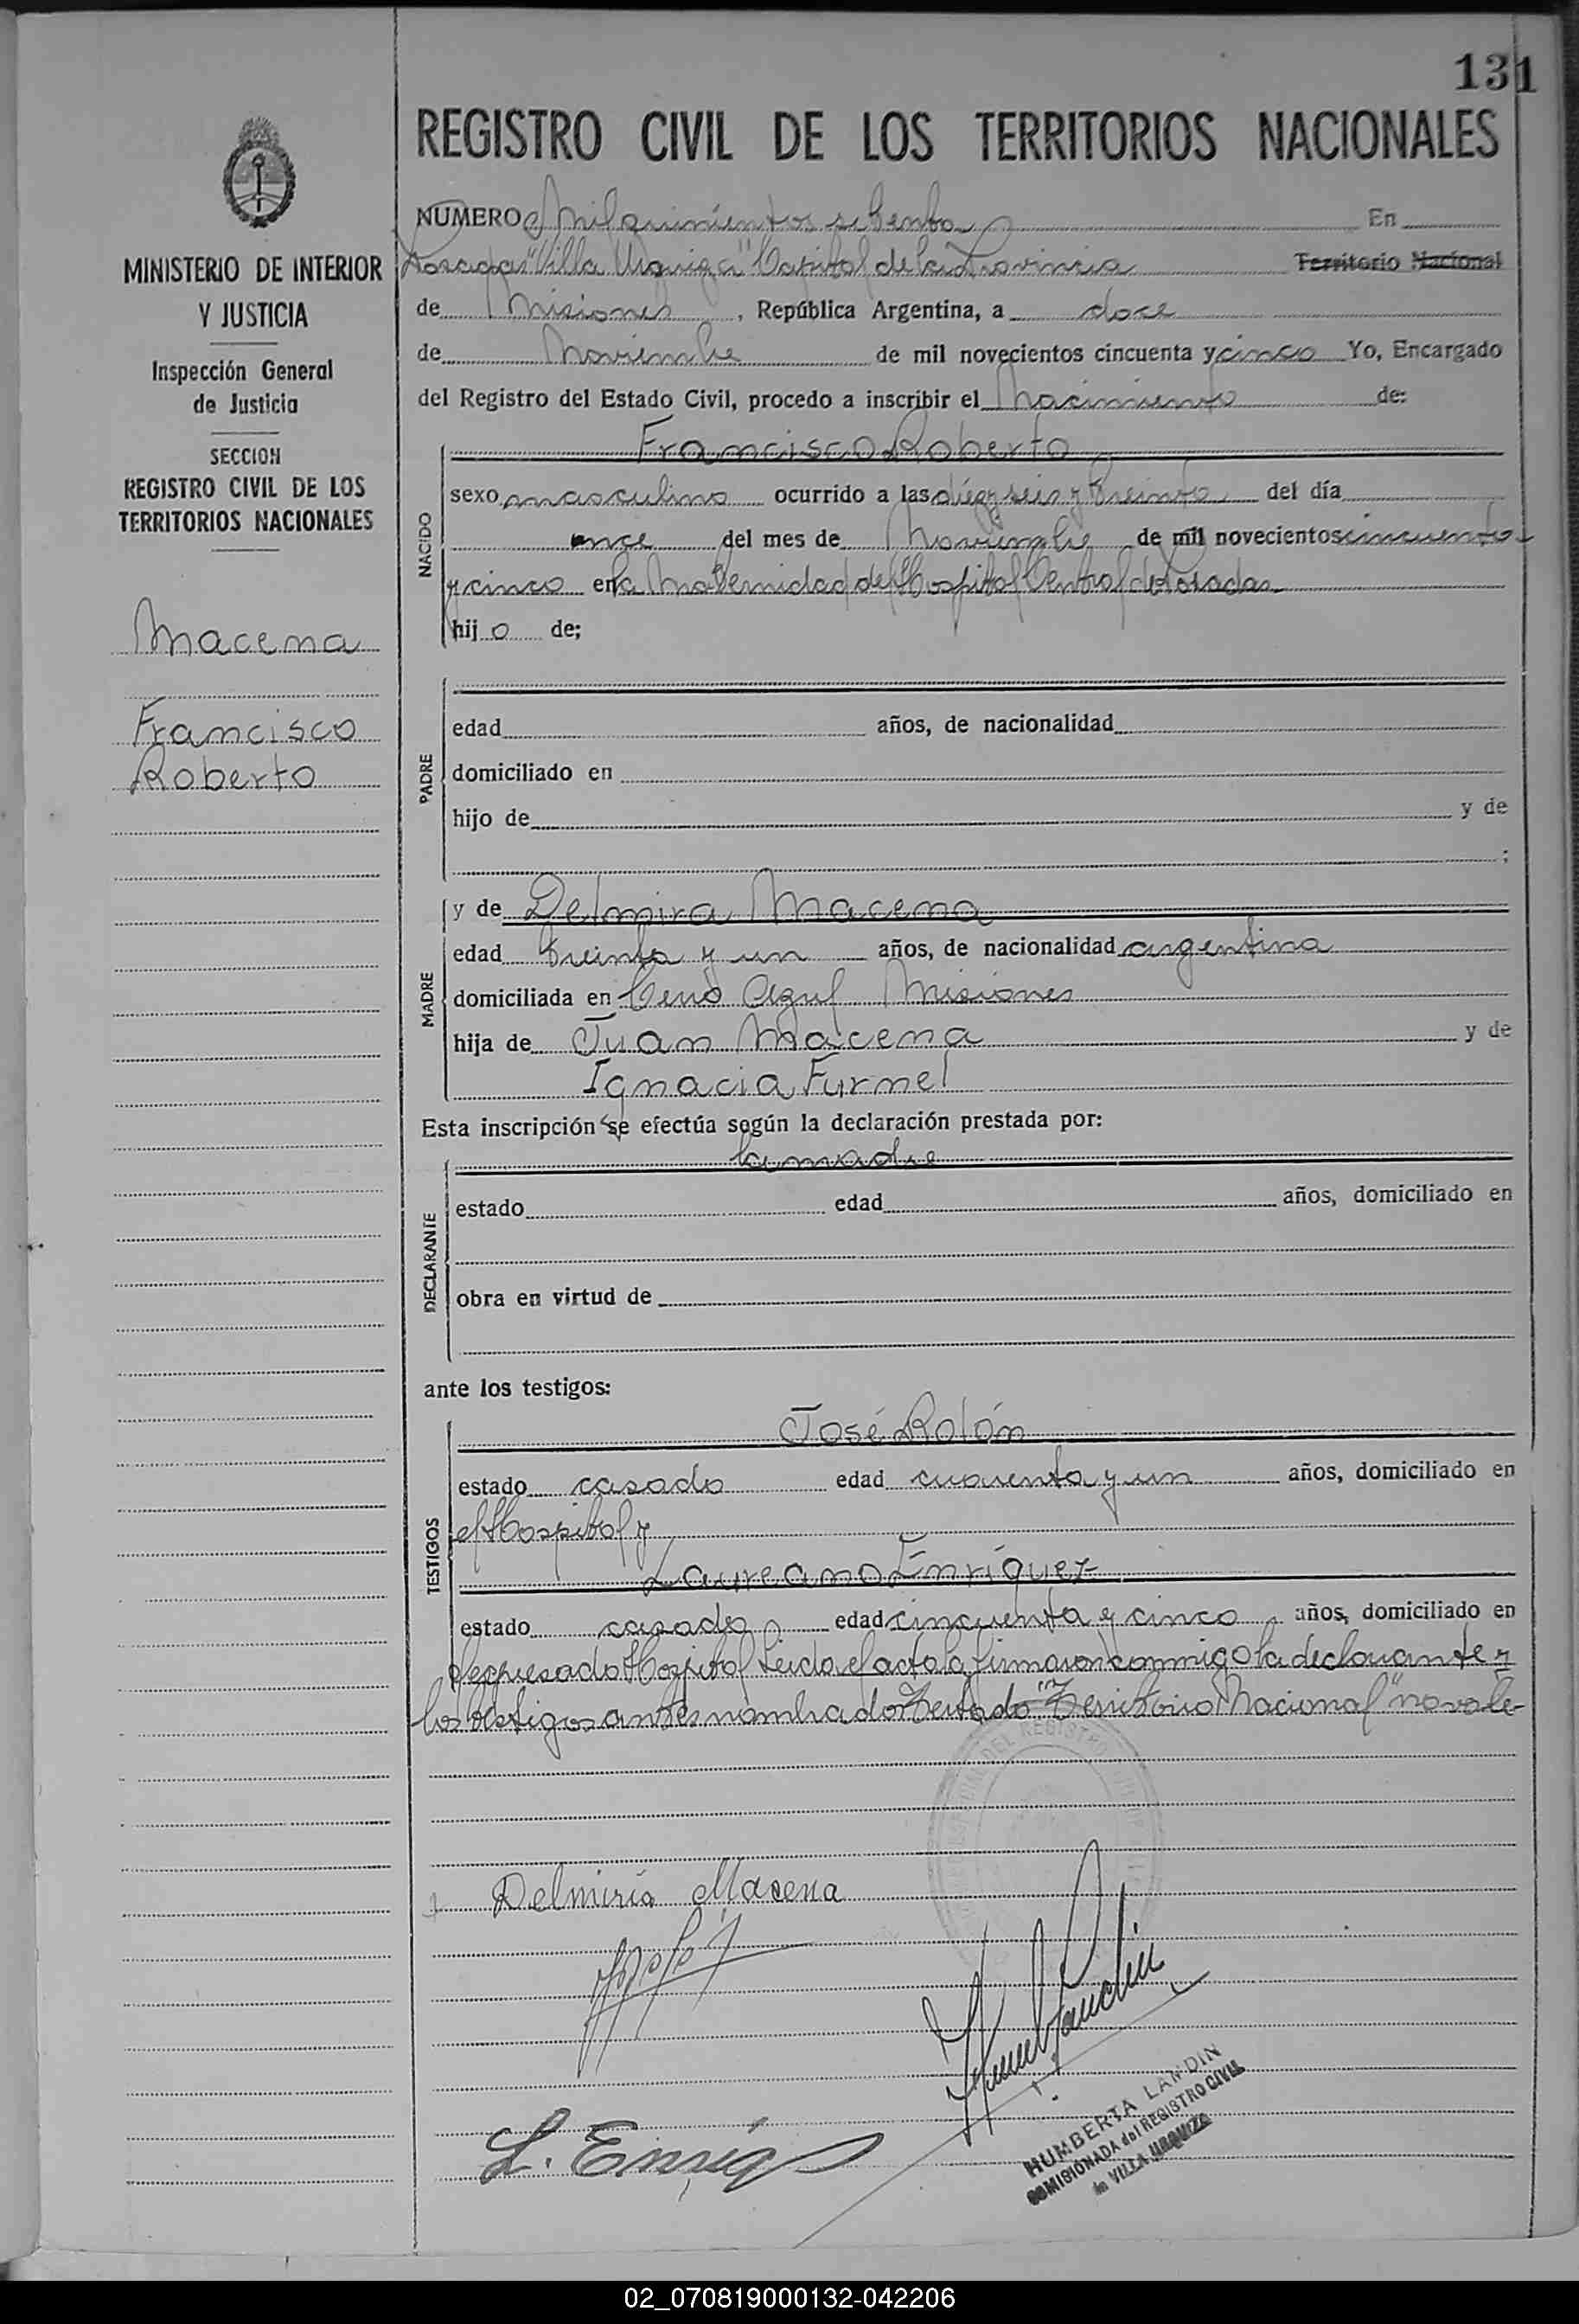 131
REGISTRO CIVIL DE LOS TERRITORIOS NACIONALES
MINISTERIO DE INTERIOR
Y JUSTICIA
Inspección General
de Justicia
SECCION
REGISTRO CIVIL DE LOS
TERRITORIOS NACIONALES
Macena
Francisco
Roberto
NUMERO Mil quinientos setenta En
Posadas "Villa Urquiza" Capital de la Provincia Territorio Nacional
de Misiones, República Argentina, a doce
de Noviembre de mil novecientos cincuenta y cinco Yo, Encargado
del Registro del Estado Civil, procedo a inscribir el Nacimiento de:
NACIDO
Francisco Roberto
sexo masculino ocurrido a las diez y seis y treinta del día
once del mes de Noviembre de mil novecientos cincuenta
y cinco en la Maternidad del Hospital Central de Posadas
hijo de;
PADRE
edad años, de nacionalidad
domiciliado en
hijo de y de
;
MADRE
y de Delmira Macena
edad treinta y un años, de nacionalidad argentina
domiciliada en Cerro Azul Misiones
hija de Juan Macena y de
Ignacia Furnel
Esta inscripción se efectúa según la declaración prestada por:
DECLARANTE
la madre
estado edad años, domiciliado en
obra en virtud de
ante los testigos:
TESTIGOS
José Rolón
estado casado edad cuarenta y un años, domiciliado en
el Hospital y
Laureano Enríquez
estado casado edad cincuenta y cinco años, domiciliado en
el expresado Hospital Leida el acta la firmaron conmigo la declarante y
los testigos antes nombrados Testado "Territorio Nacional" no vale
DEL REGISTRO
Delmiria Macena
L. Enriq
HUMBERTA LANDIN
COMISIONADA del REGISTRO CIVIL
in VILLA URQUIZA
02_070819000132-042206